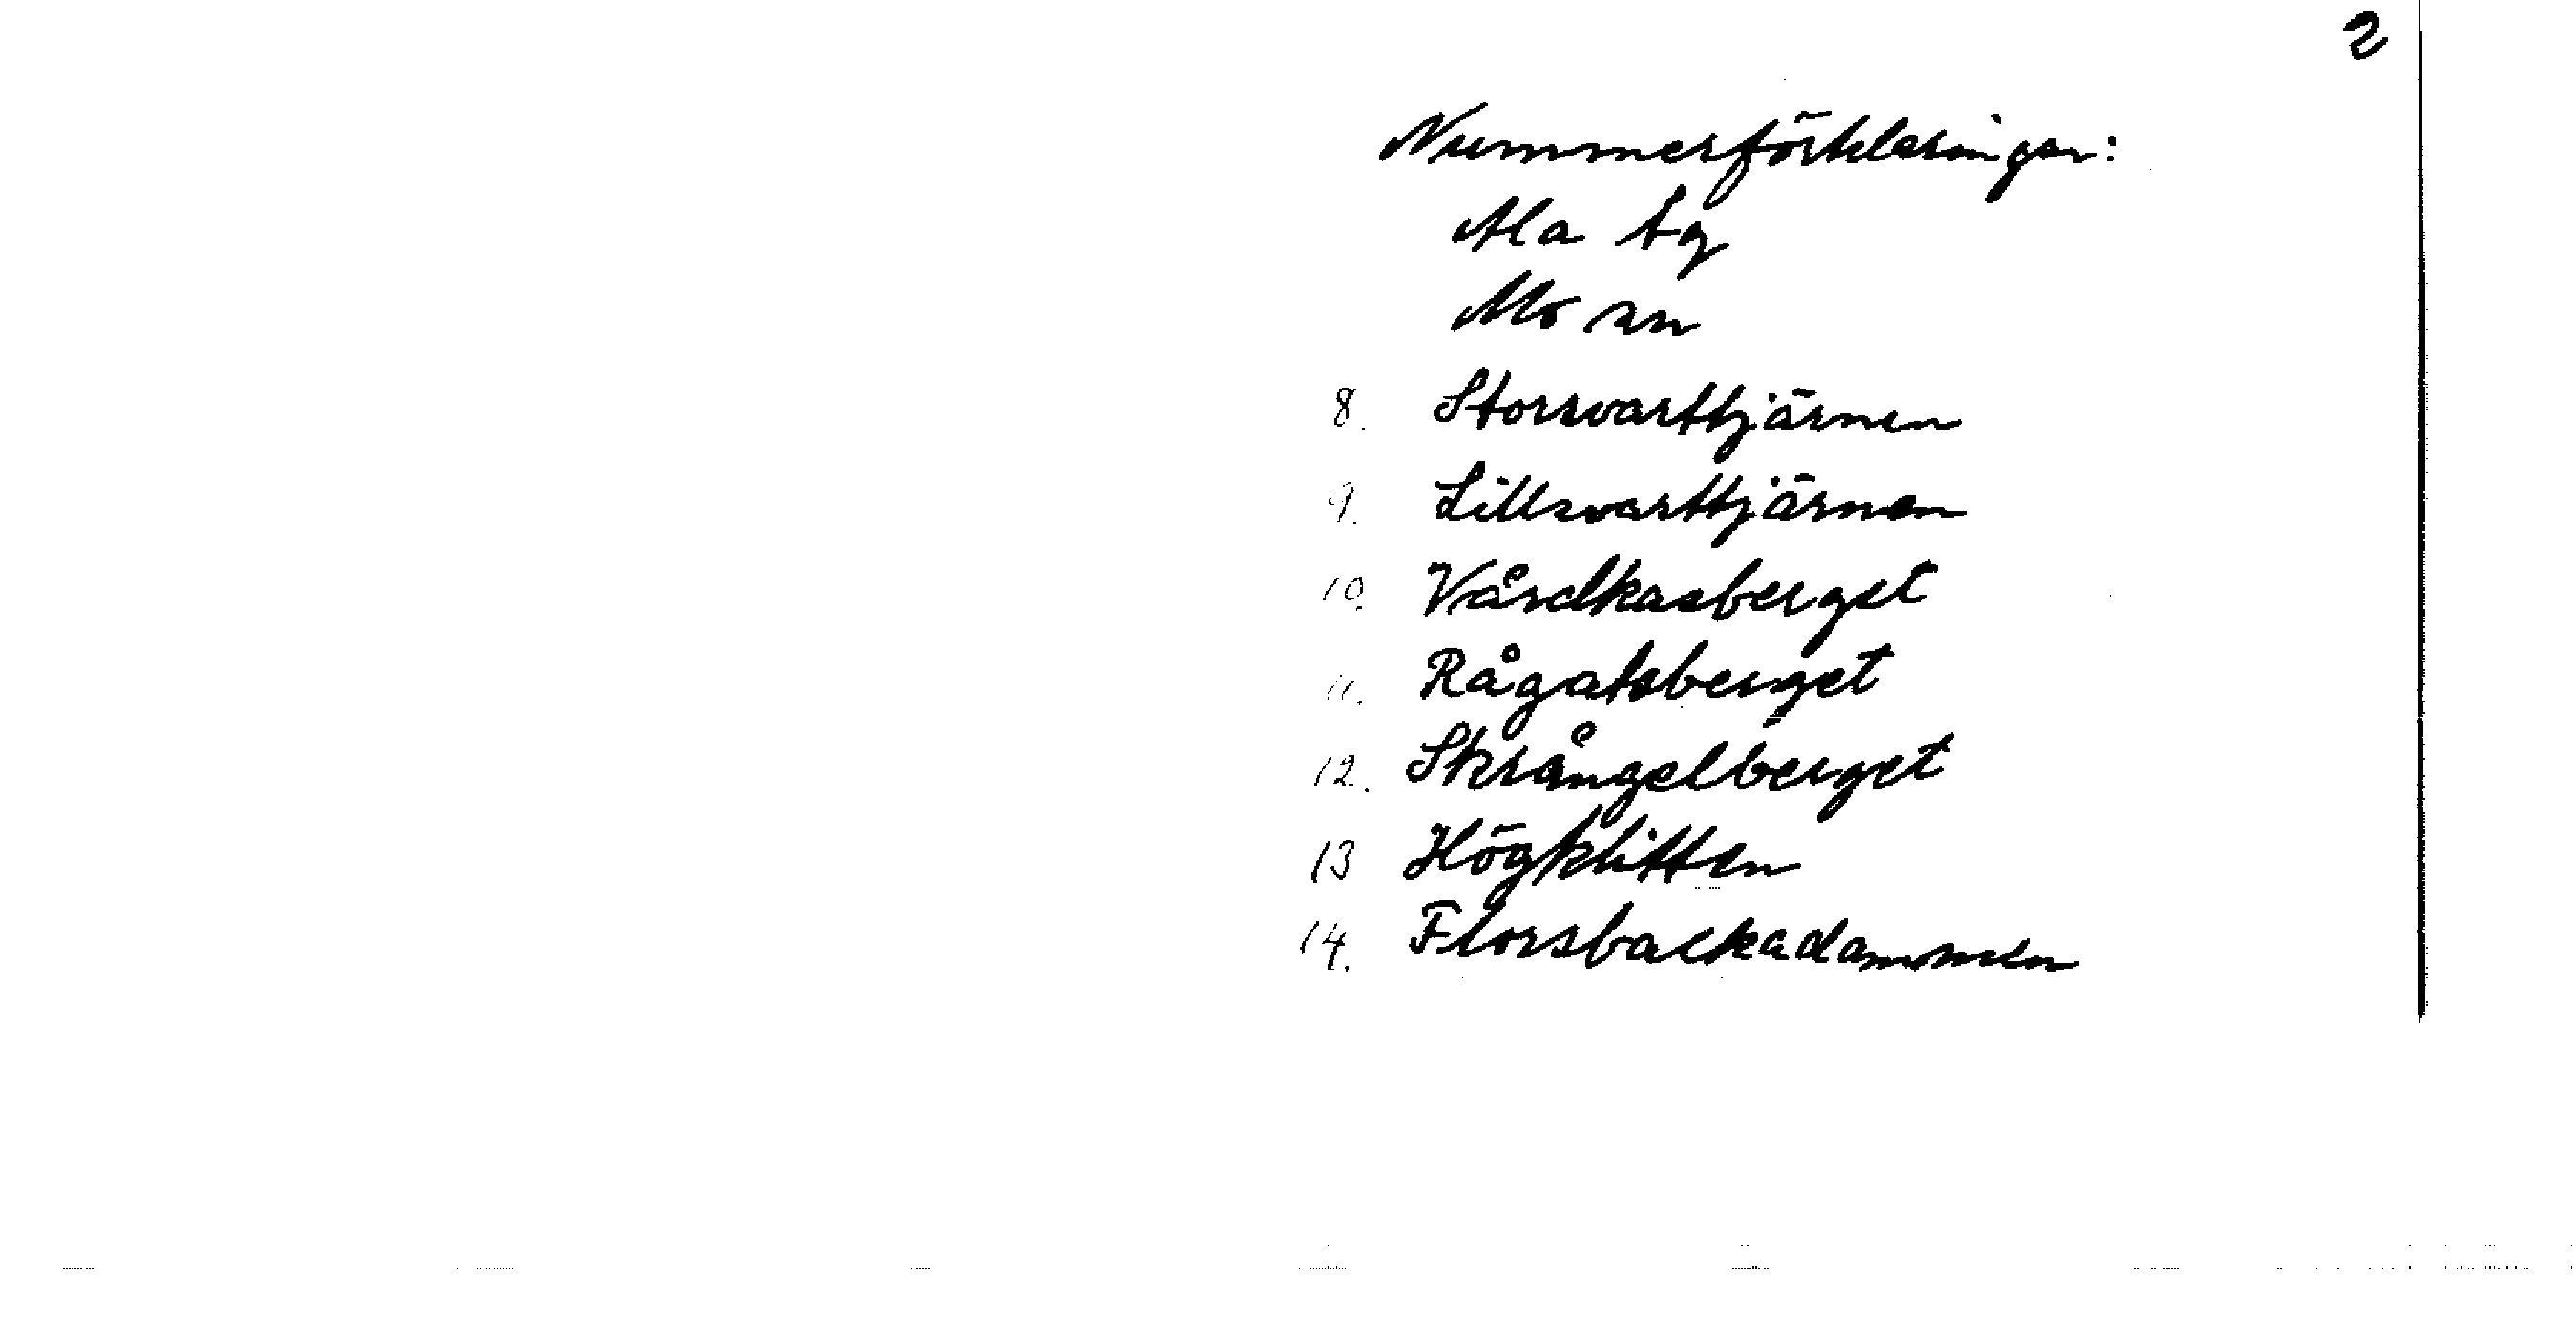 2
Nummerförklaringar:
Ala tg
Mo sn
8. Storsvarttjärnen
9. Lillsvarttjärnen
10. Vårdkasberget
11. Rågatsberget
12. Skrångelberget
13 Högklitten
14. Florsbackadammen